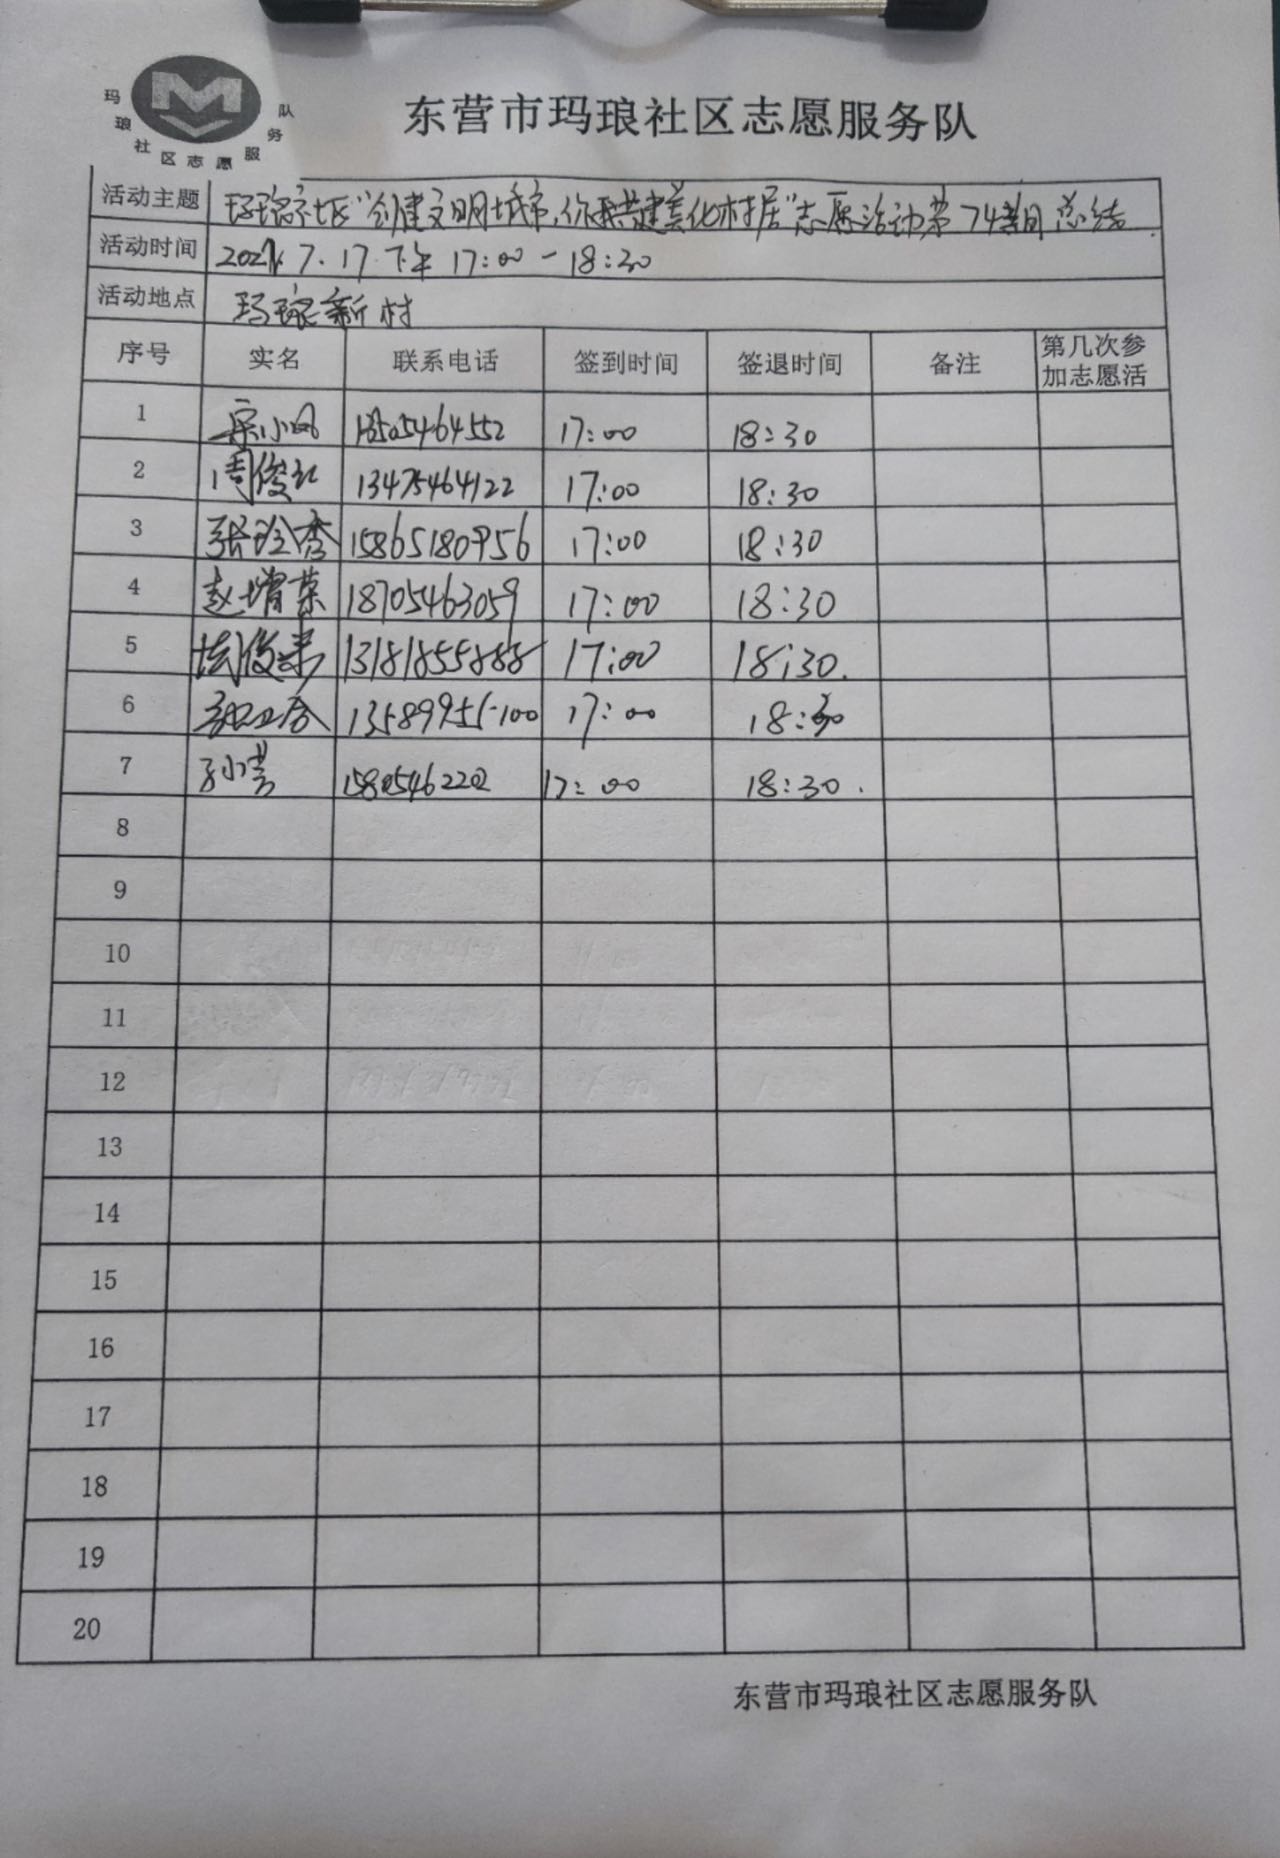 玛琅社区志愿服务队
东营市玛琅社区志愿服务队
活动主题 玛琅社区"创建文明城市,你我共建美化村居"志愿活动第74期总结.
活动时间 2021.7.17.下午 17:00-18:30
活动地点 玛琅新村
序号 实名 联系电话 签到时间 签退时间 备注 第几次参加志愿活
1 宋小凤 17:00 18:30
2 周俊红 13475464122 17:00 18:30
3 张玲秀 15865180956 17:00 18:30
4 赵增荣 18705463059 17:00 18:30
5 13181855888 17:00 18:30.
6 13589955100 17:00 18:30
7 孙小芳 15805462202 17:00 18:30.
8
9
10
11
12
13
14
15
16
17
18
19
20
东营市玛琅社区志愿服务队